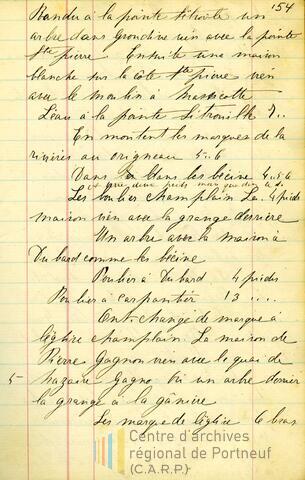 154
Rendu à la pointe Citrouille un
arbre dans Grondine vien avec la pointe
Ste pierre Ensuite une maison
blanche sur la côte Ste pierre vien
avec le moulin à Massicotte
L'eau à la pointe Citrouille 7..
En montent les marques de la
rivières au origneau 5..6
Dans les bécine 4..5.6
Les boulier champlain La. 4 pieds
maison vien avec la grange derrière
Un arbre avec la maison à
Dubard comme les bécine
Poulier à Dubard 4 pieds
Poulier à carpantier 13 ....
Ont changé de marque à
léglise champlain. La maison de
Pierre Gagnon vien avec le quai de
5- Nazaire Gagno un arbre
la grange à la
Les marque de léglise 6 bras
Centre d'archives
régional de Portneuf
(C.A.R.P.)